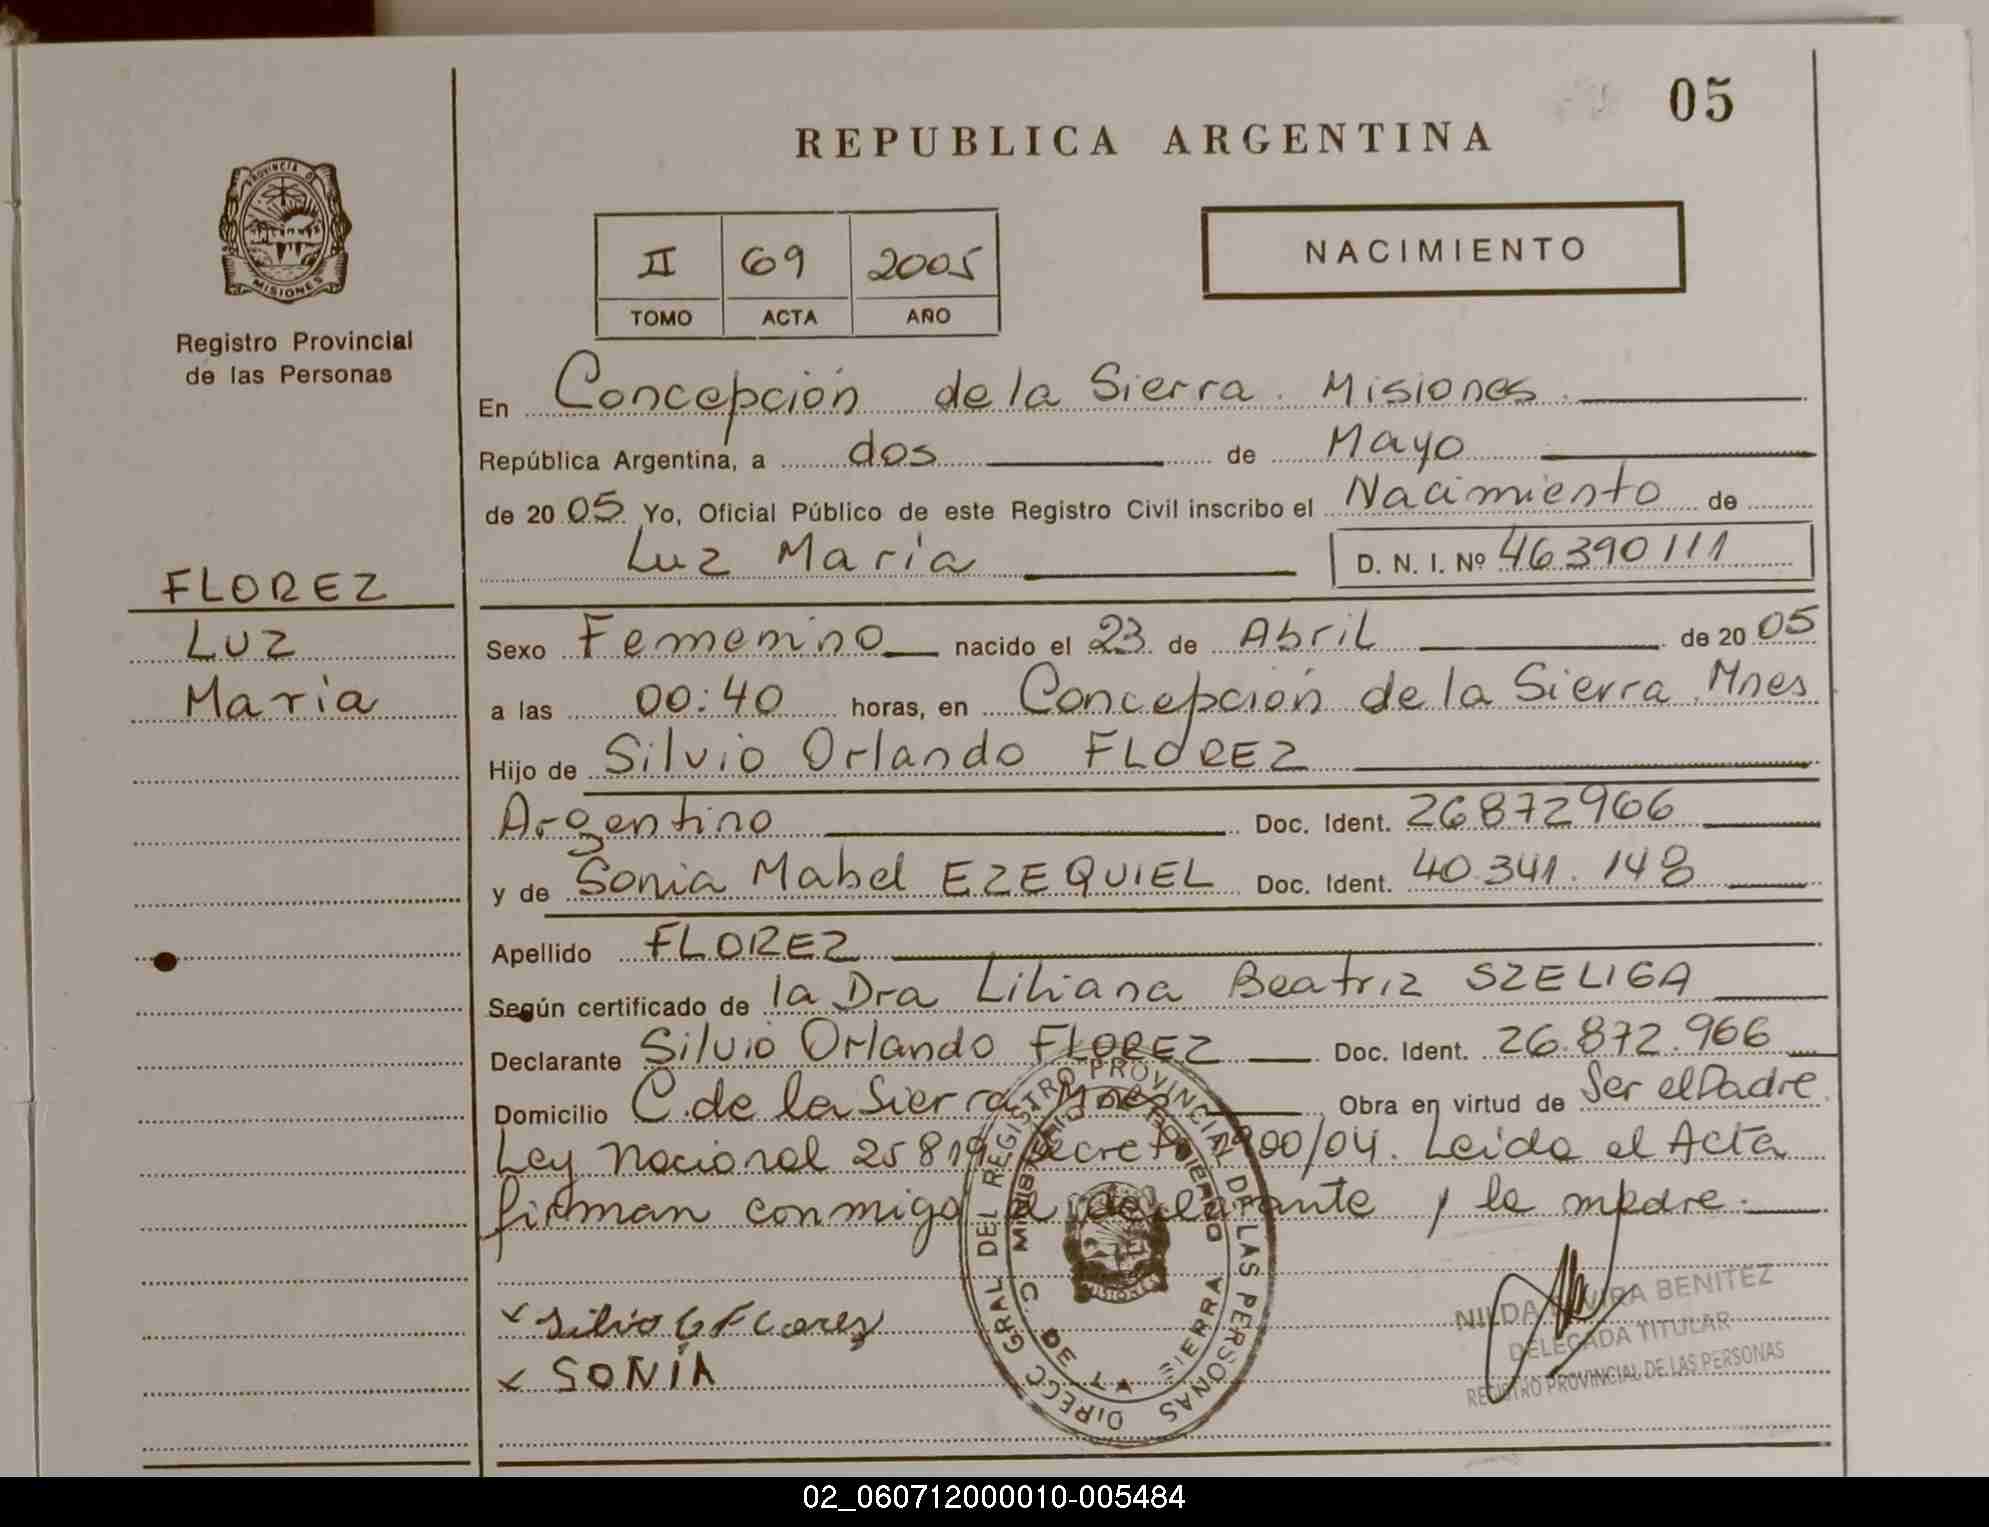 05
REPUBLICA ARGENTINA
PROVINCIA DE
MISIONES
Registro Provincial
de las Personas
II 69 2005
TOMO ACTA AÑO
NACIMIENTO
En Concepción de la Sierra. Misiones
República Argentina, a dos de Mayo
de 2005 Yo, Oficial Público de este Registro Civil inscribo el Nacimiento de
Luz María D. N. I. Nº 46390111
FLOREZ
Luz
María
Sexo Femenino nacido el 23 de Abril de 2005
a las 00:40 horas, en Concepción de la Sierra. Mnes
Hijo de Silvio Orlando FLOREZ
Argentino Doc. Ident. 26872966
y de Sonia Mabel EZEQUIEL Doc. Ident. 40.341.148
Apellido FLOREZ
Según certificado de la Dra Liliana Beatriz SZELIGA
Declarante Silvio Orlando FLOREZ Doc. Ident. 26.872.966
Domicilio C. de la Sierra Mnes Obra en virtud de Ser el Padre
Ley Nacional 25819 Decreto 1900/04. Leida el Acta
firman conmigo el declarante y la madre.
DIRECC. GRAL DEL REGISTRO PROVINCIAL DE LAS PERSONAS
MINISTERIO DE GOBIERNO
C. DE LA SIERRA
MISIONES
Silvio
SONIA
NILDA ELVIRA BENITEZ
DELEGADA TITULAR
REGISTRO PROVINCIAL DE LAS PERSONAS
02_060712000010-005484